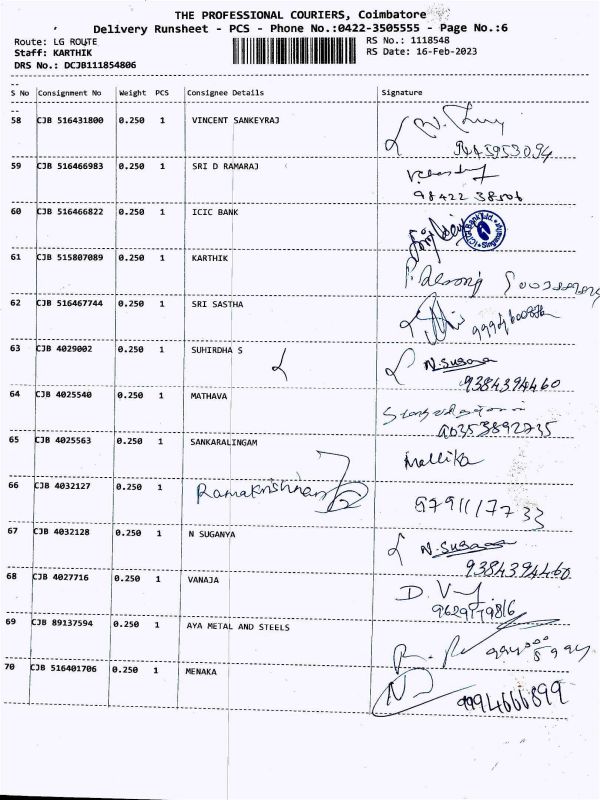 THE PROFESSIONAL COURIERS, Coimbatore
Delivery Runsheet - PCS - Phone No.:0422-3505555 - Page No.:6
Route: LG ROUTE RS No.: 1118548
Staff: KARTHIK RS Date: 16-Feb-2023
DRS No.: DCJB111854806
S No Consignment No Weight PCS Consignee Details Signature
58 CJB 516431800 0.250 1 VINCENT SANKEYRAJ
59 CJB 516466983 0.250 1 SRI D RAMARAJ
98422 38506
60 CJB 516466822 0.250 1 ICIC BANK
61 CJB 515807089 0.250 1 KARTHIK
62 CJB 516467744 0.250 1 SRI SASTHA
63 CJB 4029002 0.250 1 SUHIRDHA S N. Sugana
9384394460
64 CJB 4025540 0.250 1 MATHAVA
90353892735
65 CJB 4025563 0.250 1 SANKARALINGAM Mallika
66 CJB 4032127 0.250 1 Ramakrishnan 9791117733
67 CJB 4032128 0.250 1 N SUGANYA N. Sugana
9384394460
68 CJB 4027716 0.250 1 VANAJA D. V
69 CJB 89137594 0.250 1 AYA METAL AND STEELS
70 CJB 516401706 0.250 1 MENAKA
9994666899